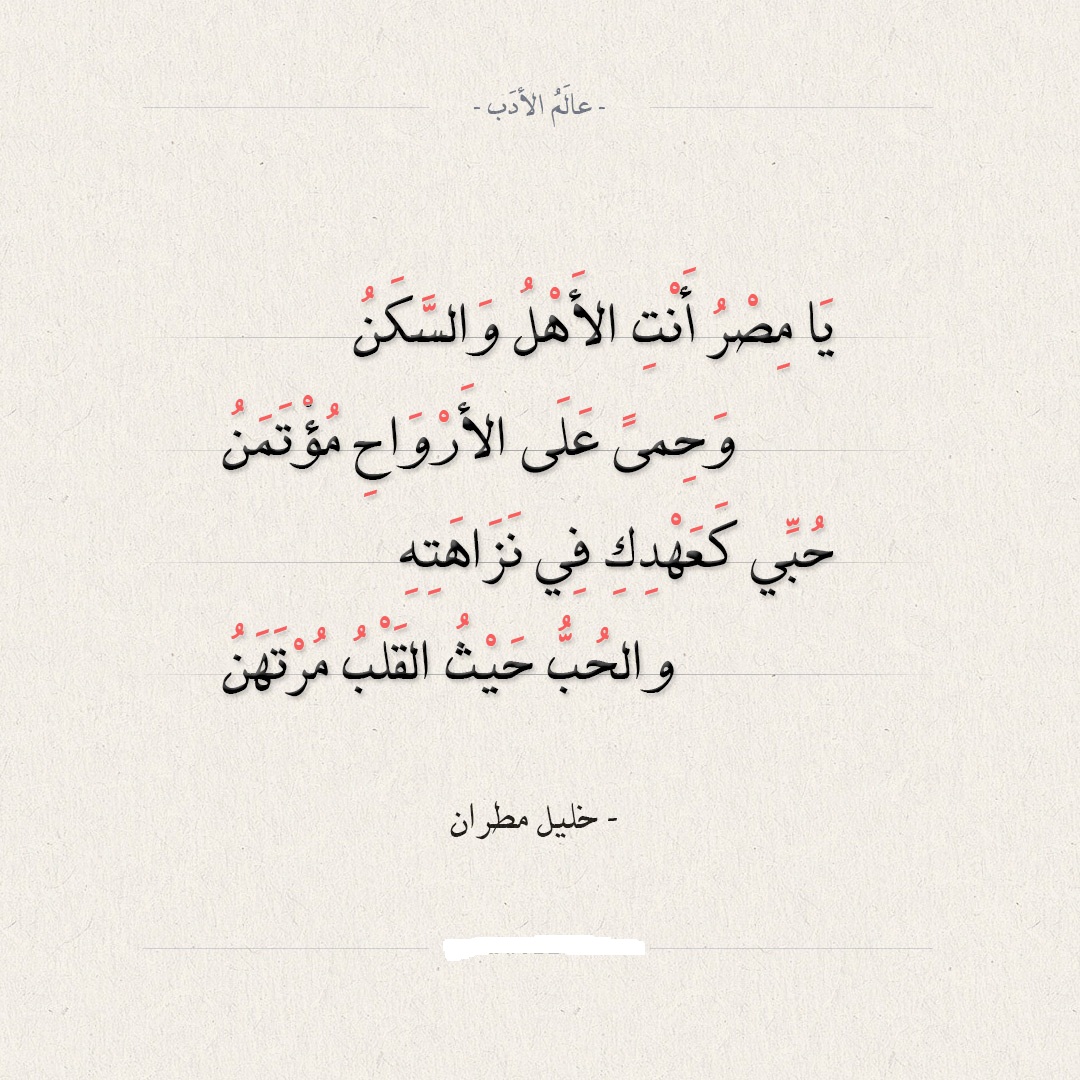 - عالَمُ الأدَب -
يَا مِصْرُ أَنْتِ الأَهْلُ وَالسَّكَنُ
وَحِمىً عَلَى الأَرْوَاحِ مُؤْتَمَنُ
حُبِّي كَعَهْدِكِ فِي نَزَاهَتِهِ
والحُبُّ حَيْثُ القَلْبُ مُرْتَهَنُ
- خليل مطران